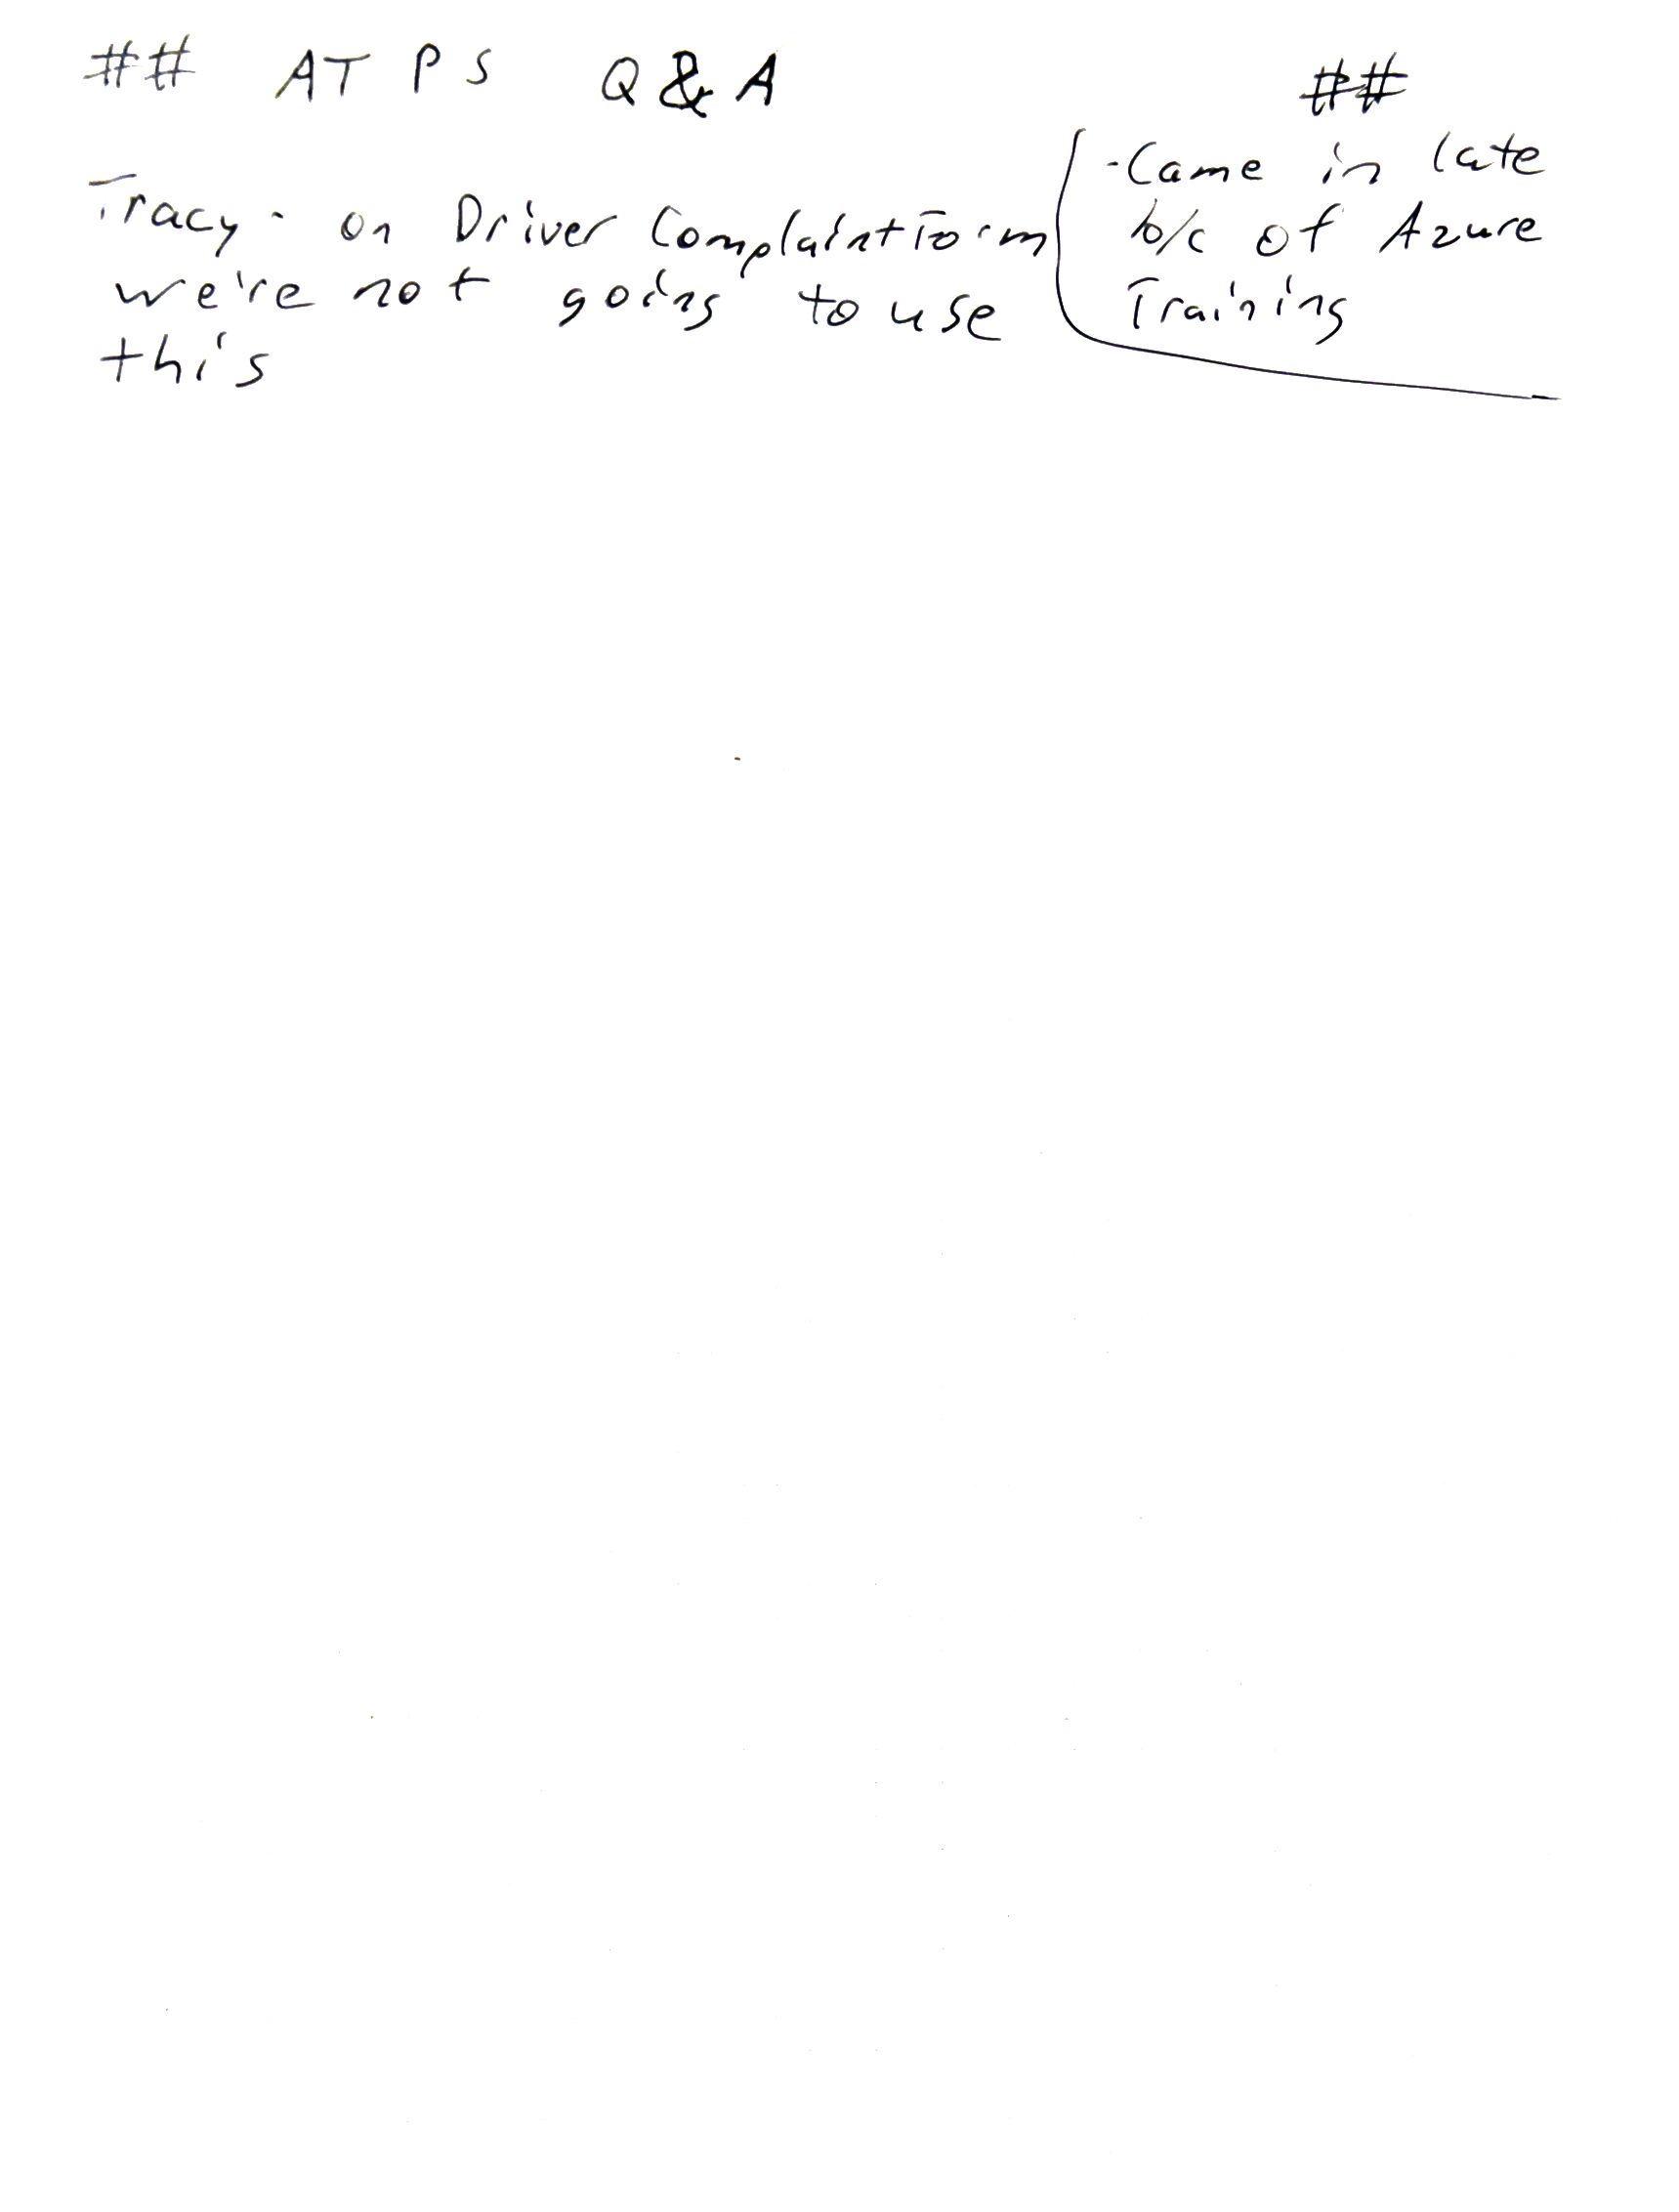 ## ATPS Q&A ##
Tracy - on Driver Complaint Form
we're not going to use
this
- Came in late
b/c of Azure
Training